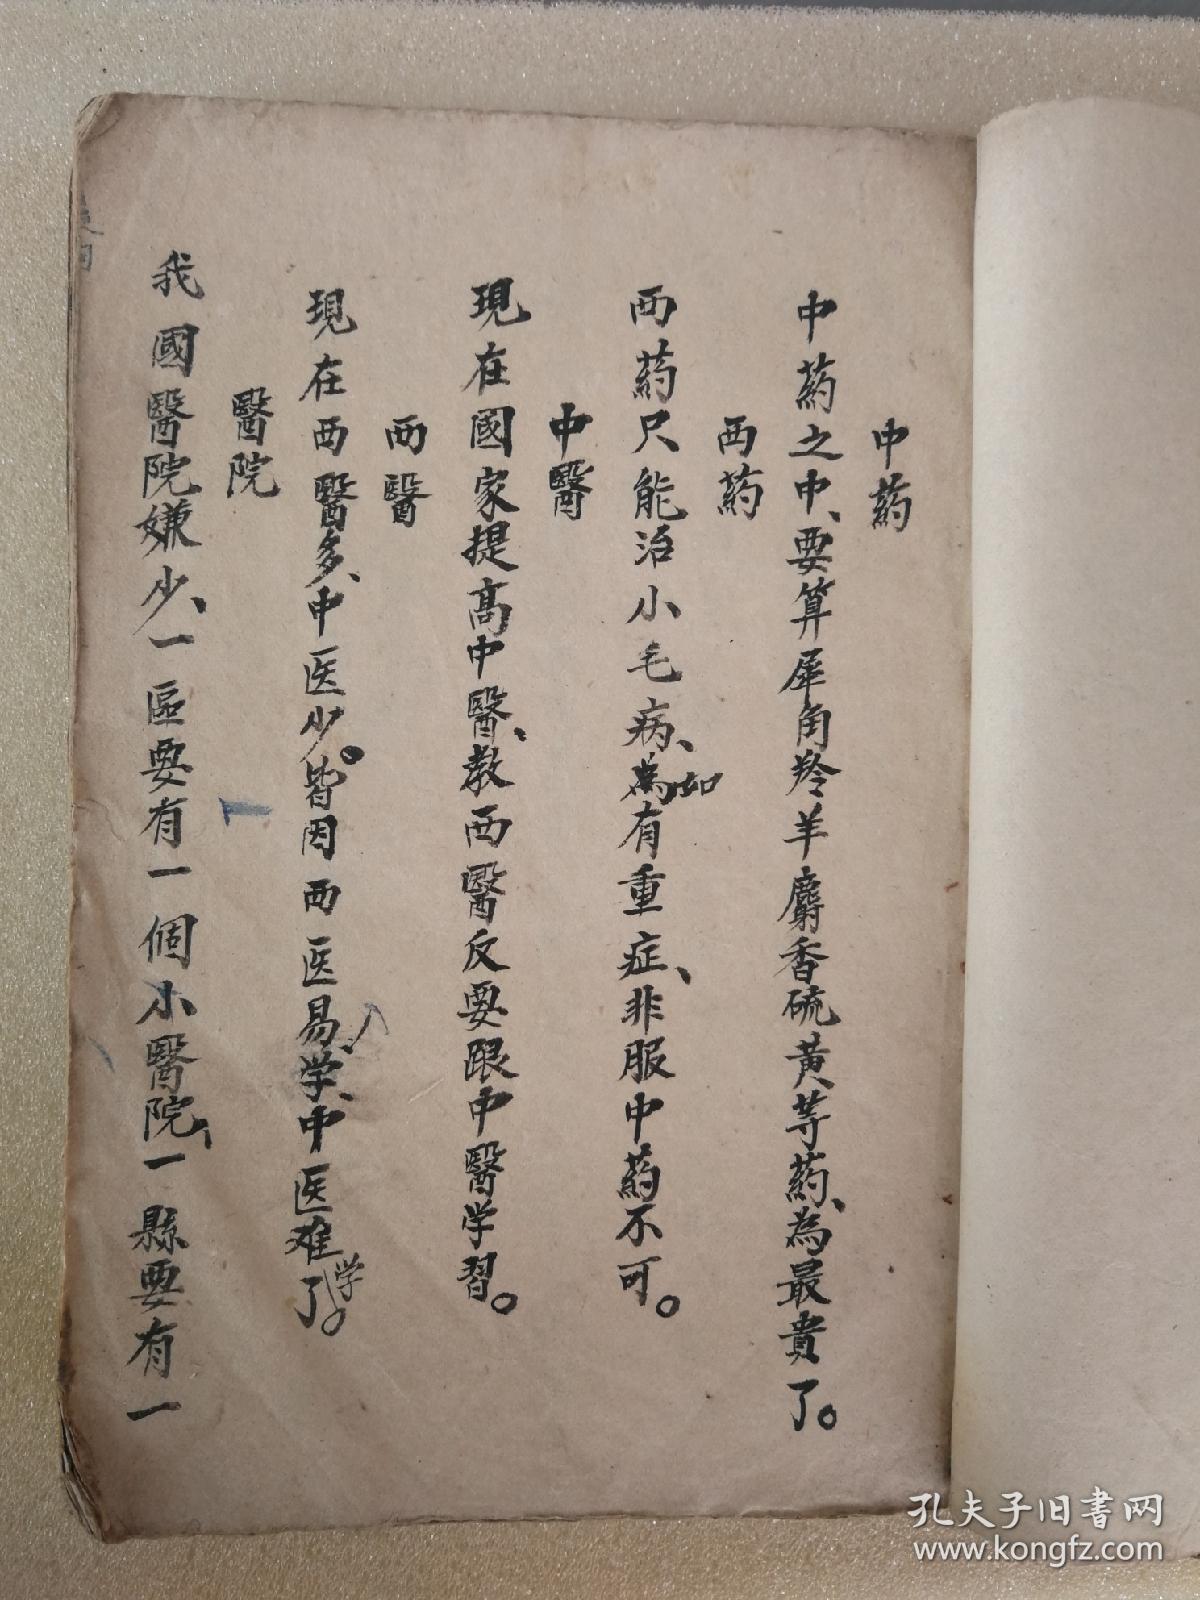 中葯
中葯之中、要算犀角羚羊麝香硫黄等葯、為最貴了。
西葯
西葯尺能治小毛病、為如有重症、非服中葯不可。
中醫
現在國家提高中醫、教西醫反要跟中醫学習。
西醫
現在西醫多、中医少。皆因西医易学、中医难学了。
醫院
我國醫院嫌少、一區要有一個小醫院、一縣要有一
孔夫子旧书网
www.kongfz.com